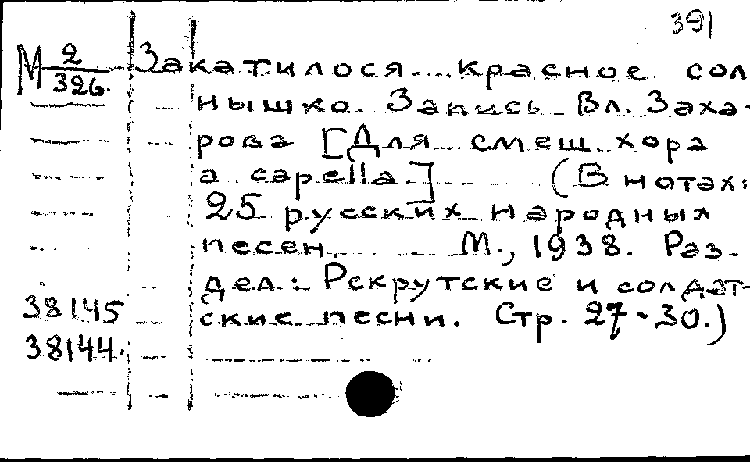 391
М 2/326. Закатилося... красное сол
нышко. Запись Вл. Заха-
рова [Для смеш. хора
a capella] (В нотах:
25 русских народных
песен. М., 1938. Раз-
дел: Рекрутские и солдат-
38145 ские песни. Стр. 27-30.)
38144.